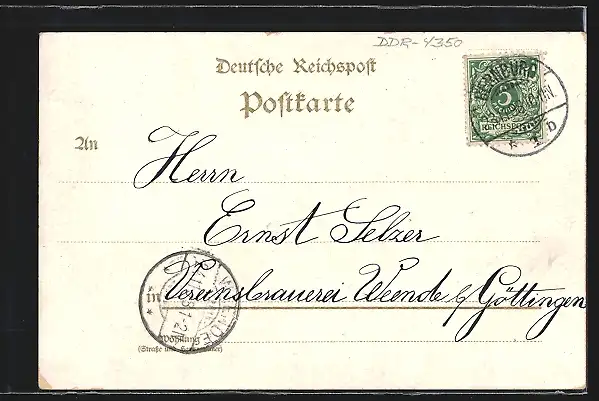 DDR-4350
Deutsche Reichspost
Postkarte
BERNBURG
5
REICHSPOST
1 b
An
Herrn
Ernst Selzer
in Vereinsbrauerei Weende b/ Göttingen
WEENDE
Wohnung
(Straße und Hausnummer)